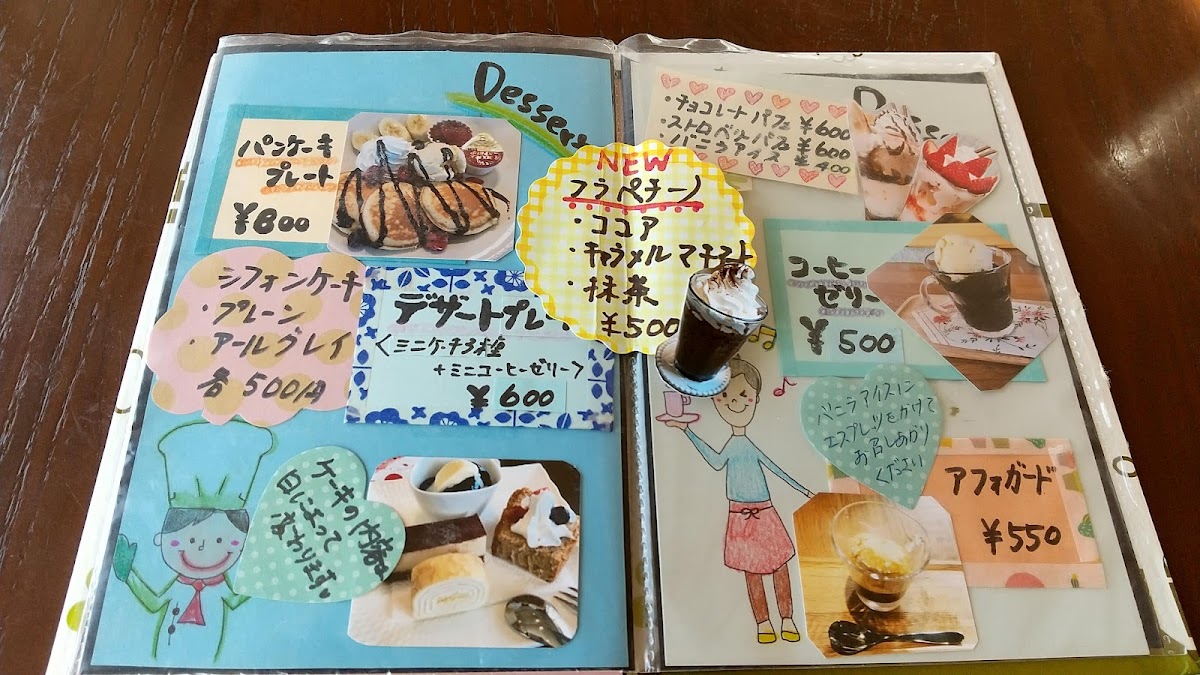 Dessert
パンケーキ
プレート
¥800
シフォンケーキ
・プレーン
・アールグレイ
各500円
デザートプレ
<ミニケーキ3種
+ミニコーヒーゼリー>
¥600
ケーキの内容は
日によって
変わります。
NEW
フラペチーノ
・ココア
・キャラメルマキアト
・抹茶
¥500
・チョコレートパフェ ¥600
・ストロベリーパフェ ¥600
・バニラアイス ¥400
コーヒー
ゼリー
¥500
バニラアイスに
エスプレッソをかけて
お召しあがり
ください
アフォガード
¥550